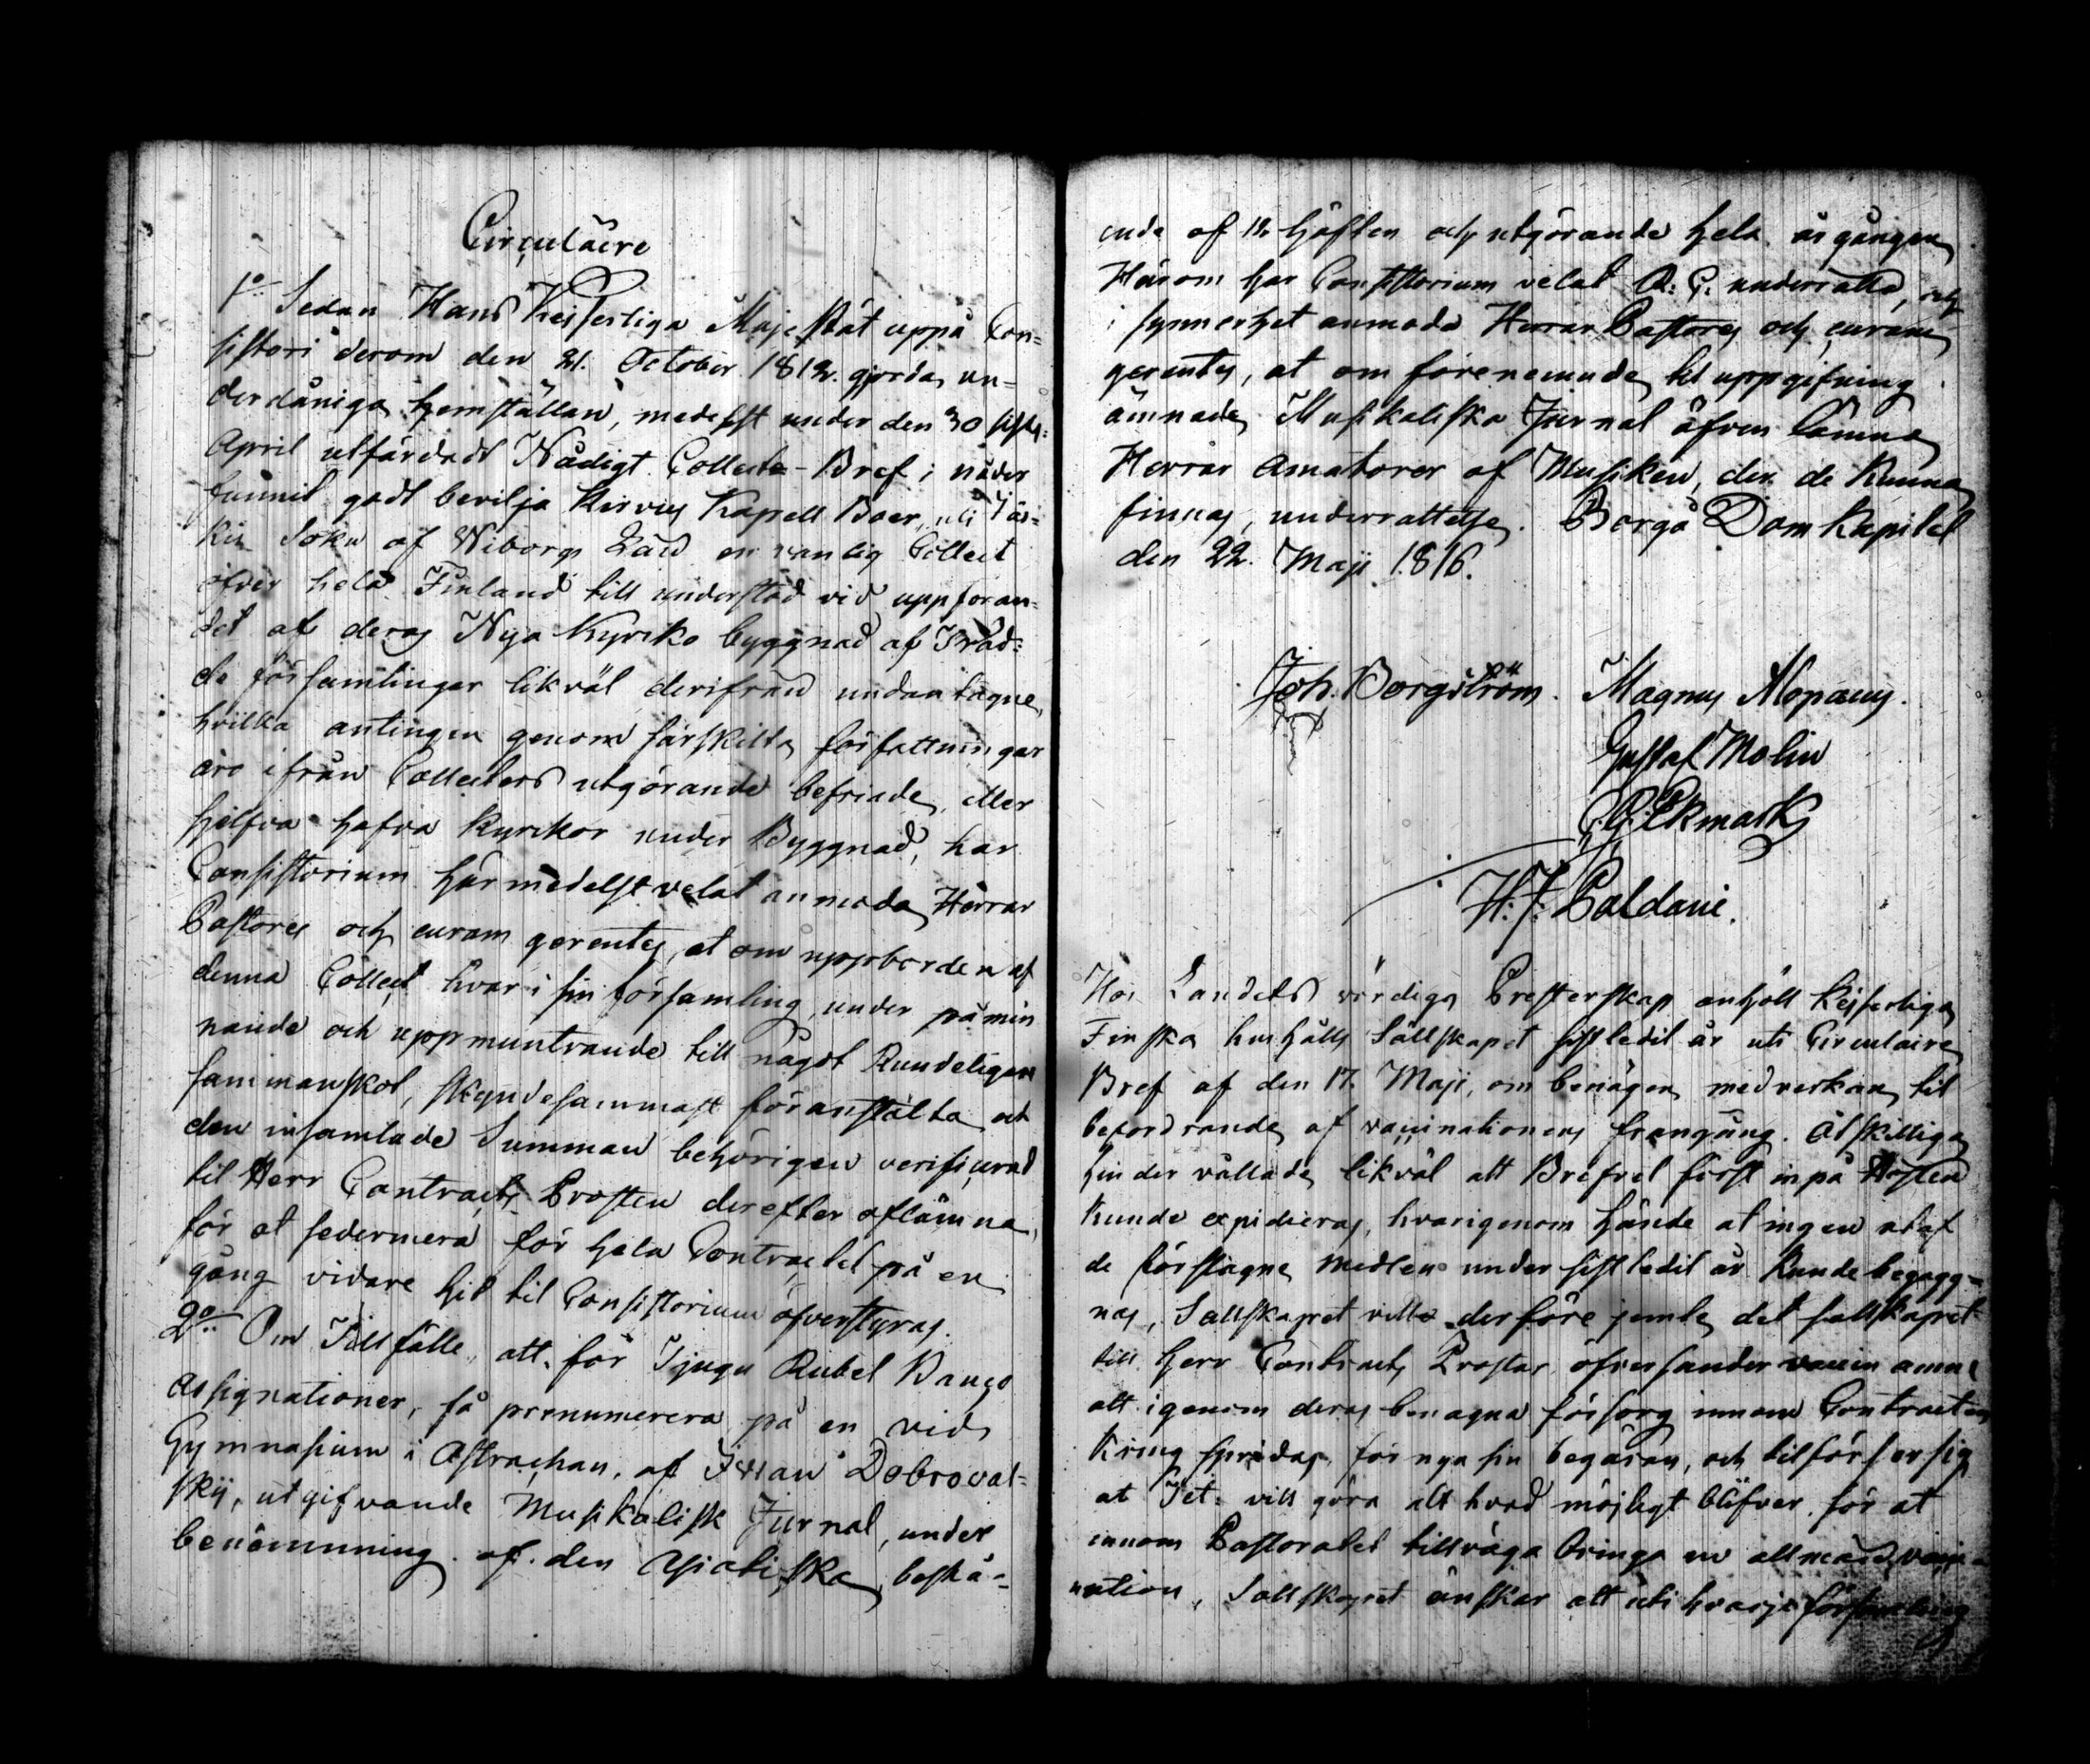 Circulaire
1o Sedan Hans Kejserliga Majestät uppå Con=
sistorii derom den 21. October 1812. gjorda un=
derdåniga hemställan, medelst under den 30 sistl:
April utfärdadt Nådigt Collect-Bref i nåder
funnit godt bevilja Kirvus Kapell Boer, uti Jäs=
kis Sokn af Wiborgs Län en vanlig Collect
öfver hela Finland till understöd vid uppföran=
det af deras Nya Kyrko byggnad af Träd=
de församlingar likväl derifrån undantagne,
hvilka antingen genom särskilta författningar
äro ifrån Collecters utgörande befriade, eller
sjelfva hafva Kyrkor under Byggnad, har
Consistorium härmedelst velat anmoda Herrar
Pastores och curam gerentes, at om uppborden af
denna Collect hvar i sin församling, under påmin
nande och uppmuntrande till något Kundeligare
sammanskot, skyndesammast föranstalta och
den insamlade Summan behörigen verificerad
til Herr Contracts Prosten derefter aflämna,
för at sedermera för hela Contractet på en
gång vidare hit til Consistorium öfverstyras.
2o Om Tillfälle, att för Tjugu Rubel Banco
Assignationer, få prenumerera på en vid
Gymnasium i Astrachan, af Ivan Dobrovol=
skij, utgifvande Musikalisk Jurnal, under
benämnning af den Asiatiska, bestå=
ende af 12 häften och utgörande hela årgången
Härom har Consistorium velat A: C: underrätta, och
i synnerhet anmoda Herrar Pastores och curam
gerentes, at om förenemnde til uppgifning
ämnade Musikaliska Jurnal äfven lämna
Herrar Amatorer af Musiken, der de kunna
finnas, underrättelse. Borgå Dom Kapitel
den 22. Maji 1816.
Joh. Borgström. Magnus Alopæus.
Gustaf Molin
C. G. Ekmark
H. J. Paldani.
Hos Landets värdiga Presterskap anhöll Kejserliga
Finska hushålls Sällskapet sistledit år uti Circulaire
Bref af den 17. Maji, om benägen medverkan til
befordrande af vaccinationens framgång. Åtskilliga
hinder vållade likväl att Brefvet först inpå Hösten
kunde expedieras, hvarigenom hände at ingen utaf
de förslagne medlen under sistledit år kunde begagg=
nas, Sällskapet ville derföre jemte det sällskapet
till Herr Contracts Prostar öfversänder vaccin ämne
att igenom deras benägna försorg innom Contracten
kring spridas, förnya sin begäran, och tilförser sig
at Tit. vill göra allt hvad möjligt blifver, för at
innom Pastoratet tillväga bringa en allmän vacci=
nation, Sällskapet önskar att uti hvarje församling